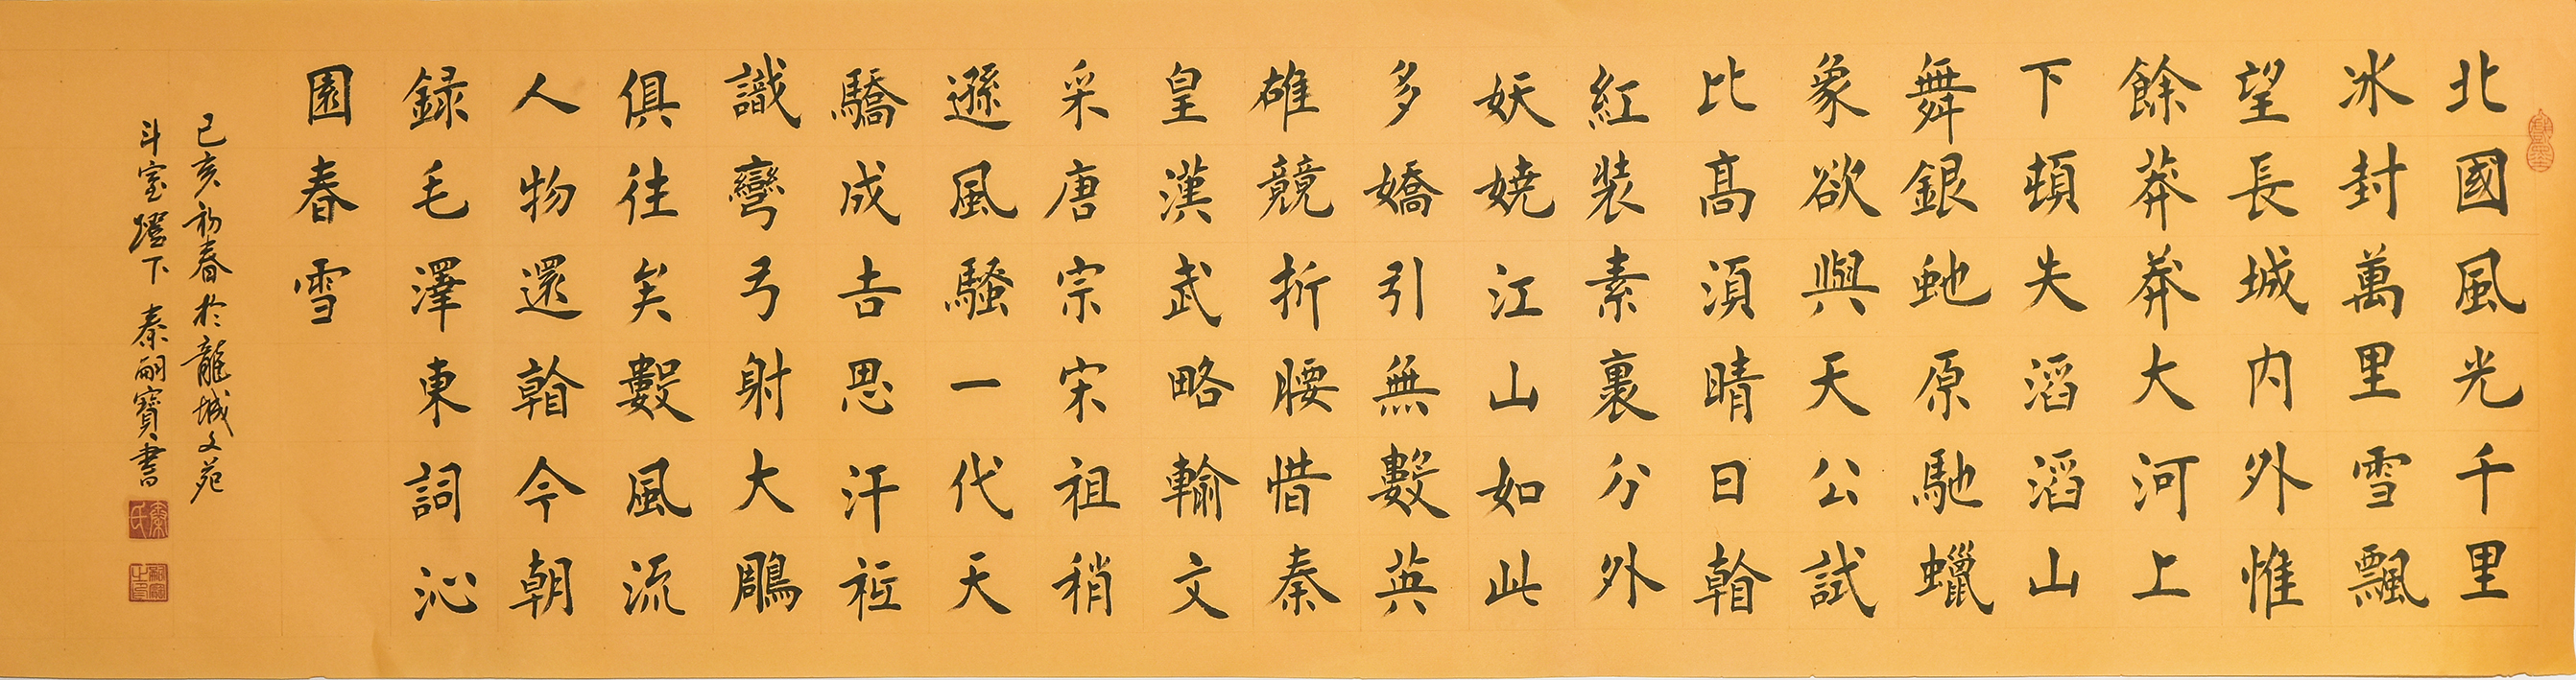 北國風光千里
冰封萬里雪飄
望長城内外惟
餘莽莽大河上
下頓失滔滔山
舞銀虵原馳蠟
象欲與天公試
比髙須晴日看
紅裝素裹分外
妖嬈江山如此
多嬌引無數英
雄競折腰惜秦
皇漢武略輸文
采唐宗宋祖稍
遜風騷一代天
驕成吉思汗衹
識彎弓射大鵰
俱往矣數風流
人物還看今朝
録毛澤東詞沁
園春雪
己亥初春於龍城文苑
斗室燈下 秦嗣寶書
秦氏
嗣寶之印